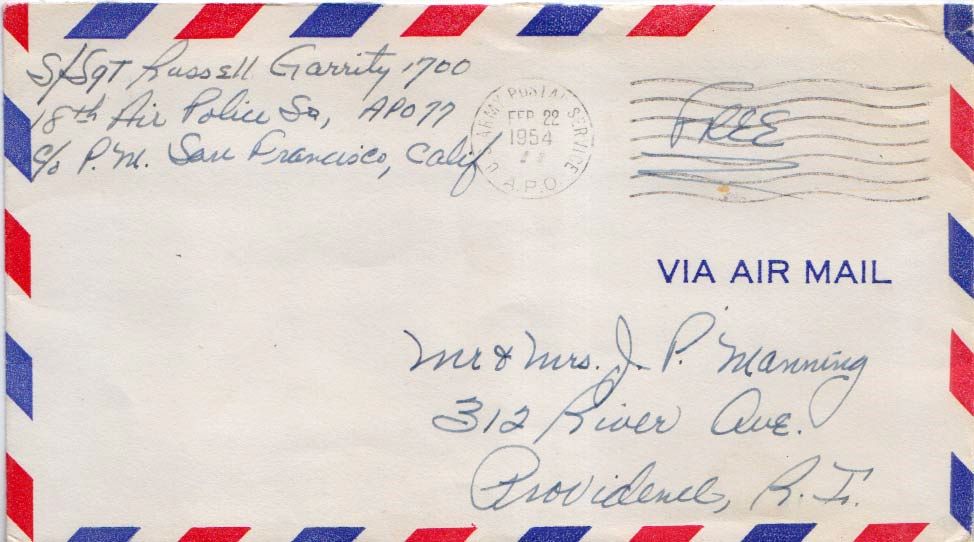 S/Sgt Russell Garrity 1700
18th Air Police Sq, APO 77
c/o P.M. San Francisco, Calif
U ARMY POSTAL SERVICE
FEB 22
1954
A.P.O.
FREE
VIA AIR MAIL
Mr & Mrs. J. P. Manning
312 River Ave.
Providence, R. I.